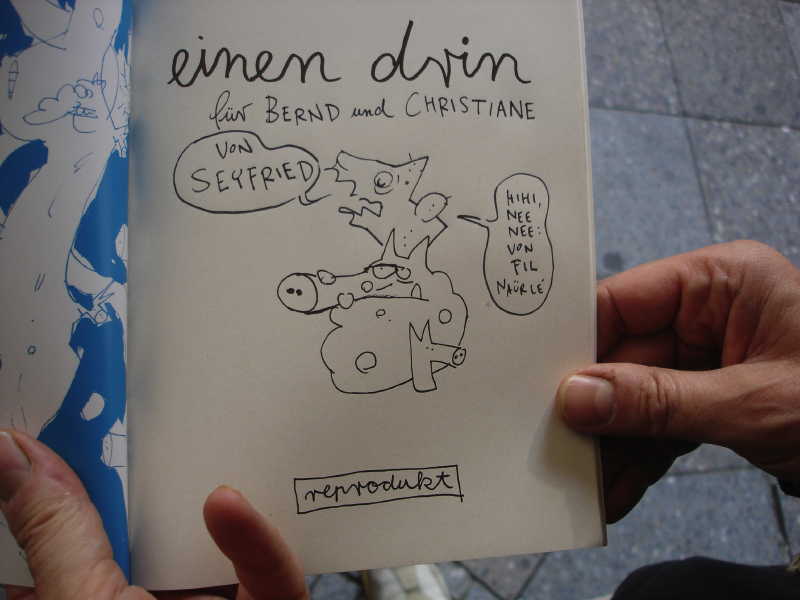 einen drin
für BERND und CHRISTIANE
VON
SEYFRIED
HIHI,
NEE
NEE:
VON
FIL
NAÜRLE'
reprodukt